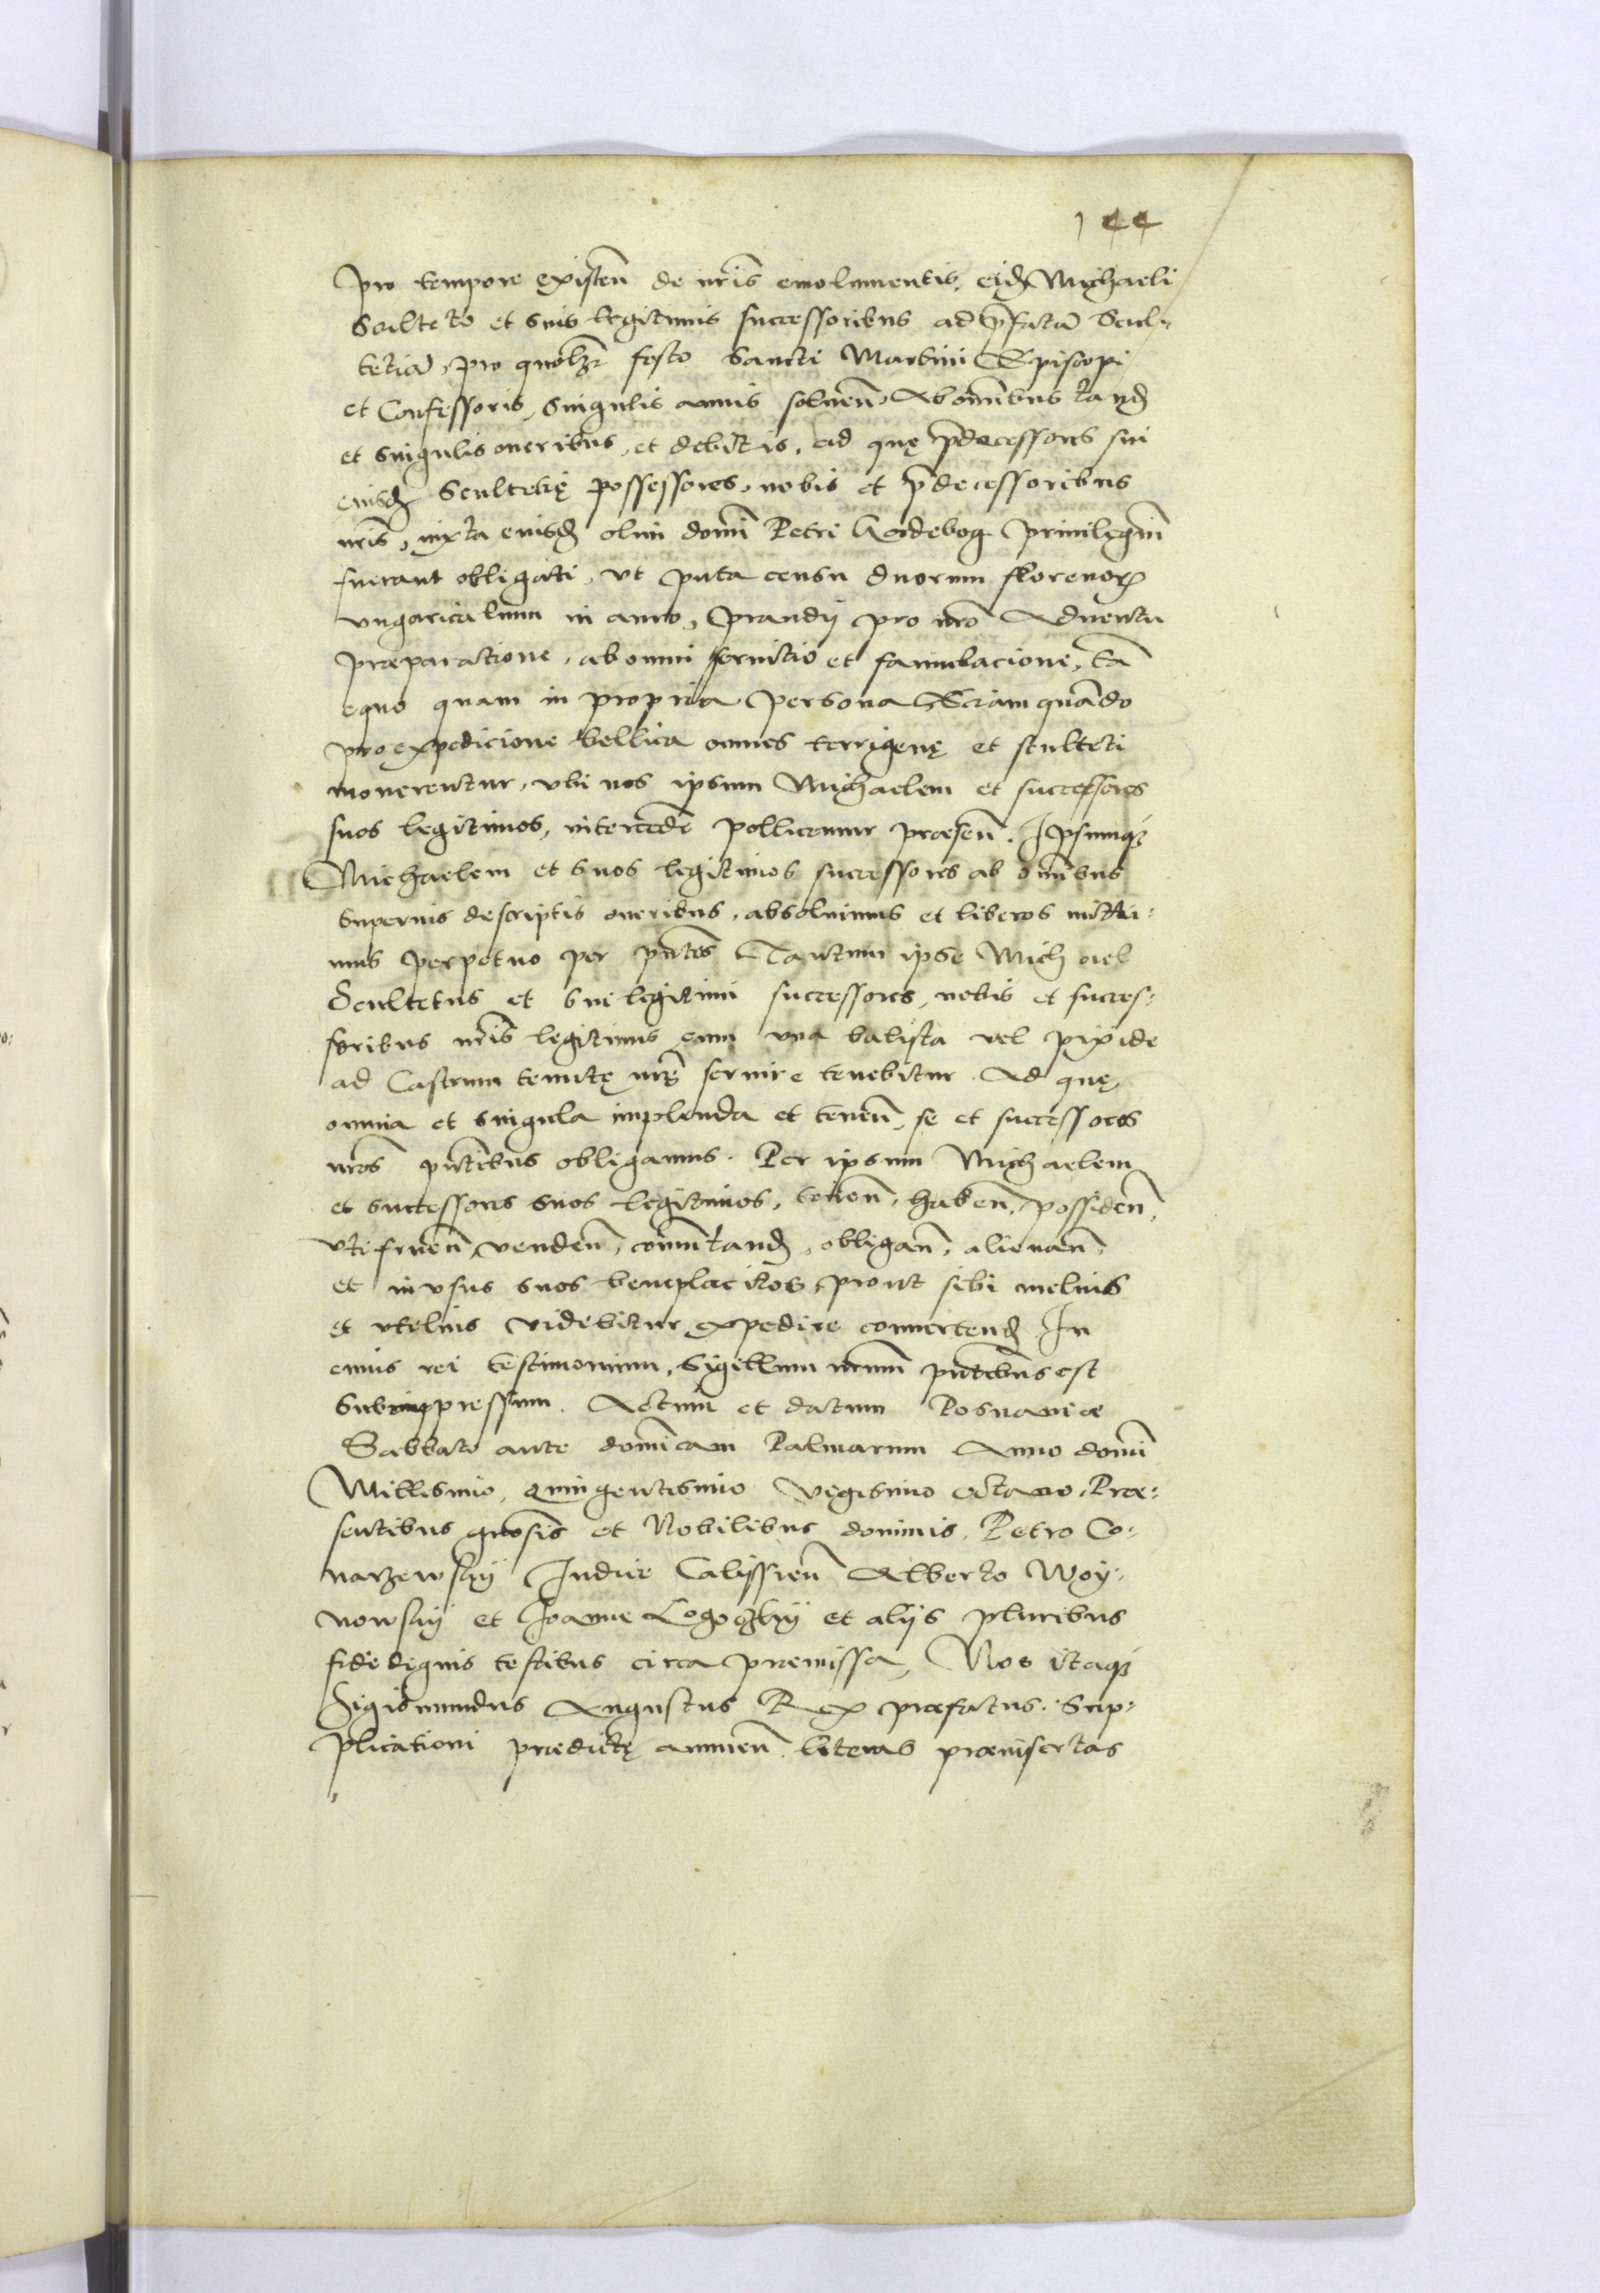 144
pro tempore existen̄ de nr̄is emolumentis, eid Michaeli
Sculteto et suis legitimis successoribus ad p̄fatā Scul-
tetiā, pro quolꝫ festo Sancti Martini Episcopi
et Confessoris, singulis annis soluen̄. Ab om̄ibus tand
et singulis oneribus, et debitis, ad quę p̄decessores sui
eiusd Scultetię possessores, nobis et p̄decessoribus
nr̄is, iuxta eiusd olim domī Petri privilegiū
fuerant obligati, vt puta censu duorum florenoꝝ
vngaricalium in anno, prandij pro nr̄o Aduentu
præparatione, ab omni seruitio et famulacione, tā
equo quam in propria persona Etiam quādo
pro expedicione bellica omnes terrigenę et sculteti
mouerentur, vbi nos ipsum Michaelem et successores
suos legitimos, intercedē pollicemur præsen̄. Ipsumqꝫ
Michaelem et suos legitimos successores ab om̄ibus
supernis descriptis oneribus, absoluimus et liberos mitti-
mus perpetuo per pn̄tes Tantum ipse Michael
Scultetus et sui legitimi successores, nobis et succes-
soribus nr̄is legitimis cum vna balista vel pixide
ad Castrum tenutę nrę̄ seruire tenebitur. Ad quę
omnia et singula implenda et tenen̄, se et successores
nr̄os pn̄tibus obligamus. Per ipsum Michaelem
et successores suos legitimos, tenen̄, haben̄, possiden̄,
vtifruen̄, venden̄, comutand, obligan̄, alienan̄,
et in vsus suos beneplacitos, prout sibi melius
et vtilius videbitur expedire conuertend In
cuius rei testimonium, Sigillum nr̄um pn̄tibus est
subimppressum. Actum et datum Posnaniæ
Sabbato ante domīcam Palmarum Anno domī
Millesimo, quingentesimo vigesimo octauo. Præ-
sentibus gnosīs et Nobilibus dominis, Petro Co-
narzewskij Iudice Calissien̄ Alberto Woy-
nowskij et Joanne et alijs pluribus
fide dignis testibus circa premissa, Nos itaqꝫ
Sigismundus Augustus Rex præfatus. Sup-
plicationi prædictę annuen̄. literas præinsertas